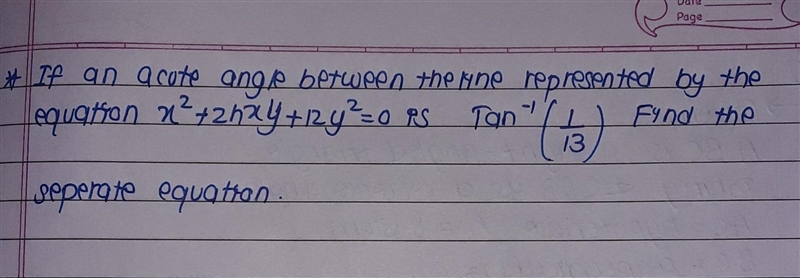 Date
Page
* If an acute angle between the line represented by the
equation x²+2hxy+12y²=0 is Tan⁻¹(1/13) Find the
seperate equation.